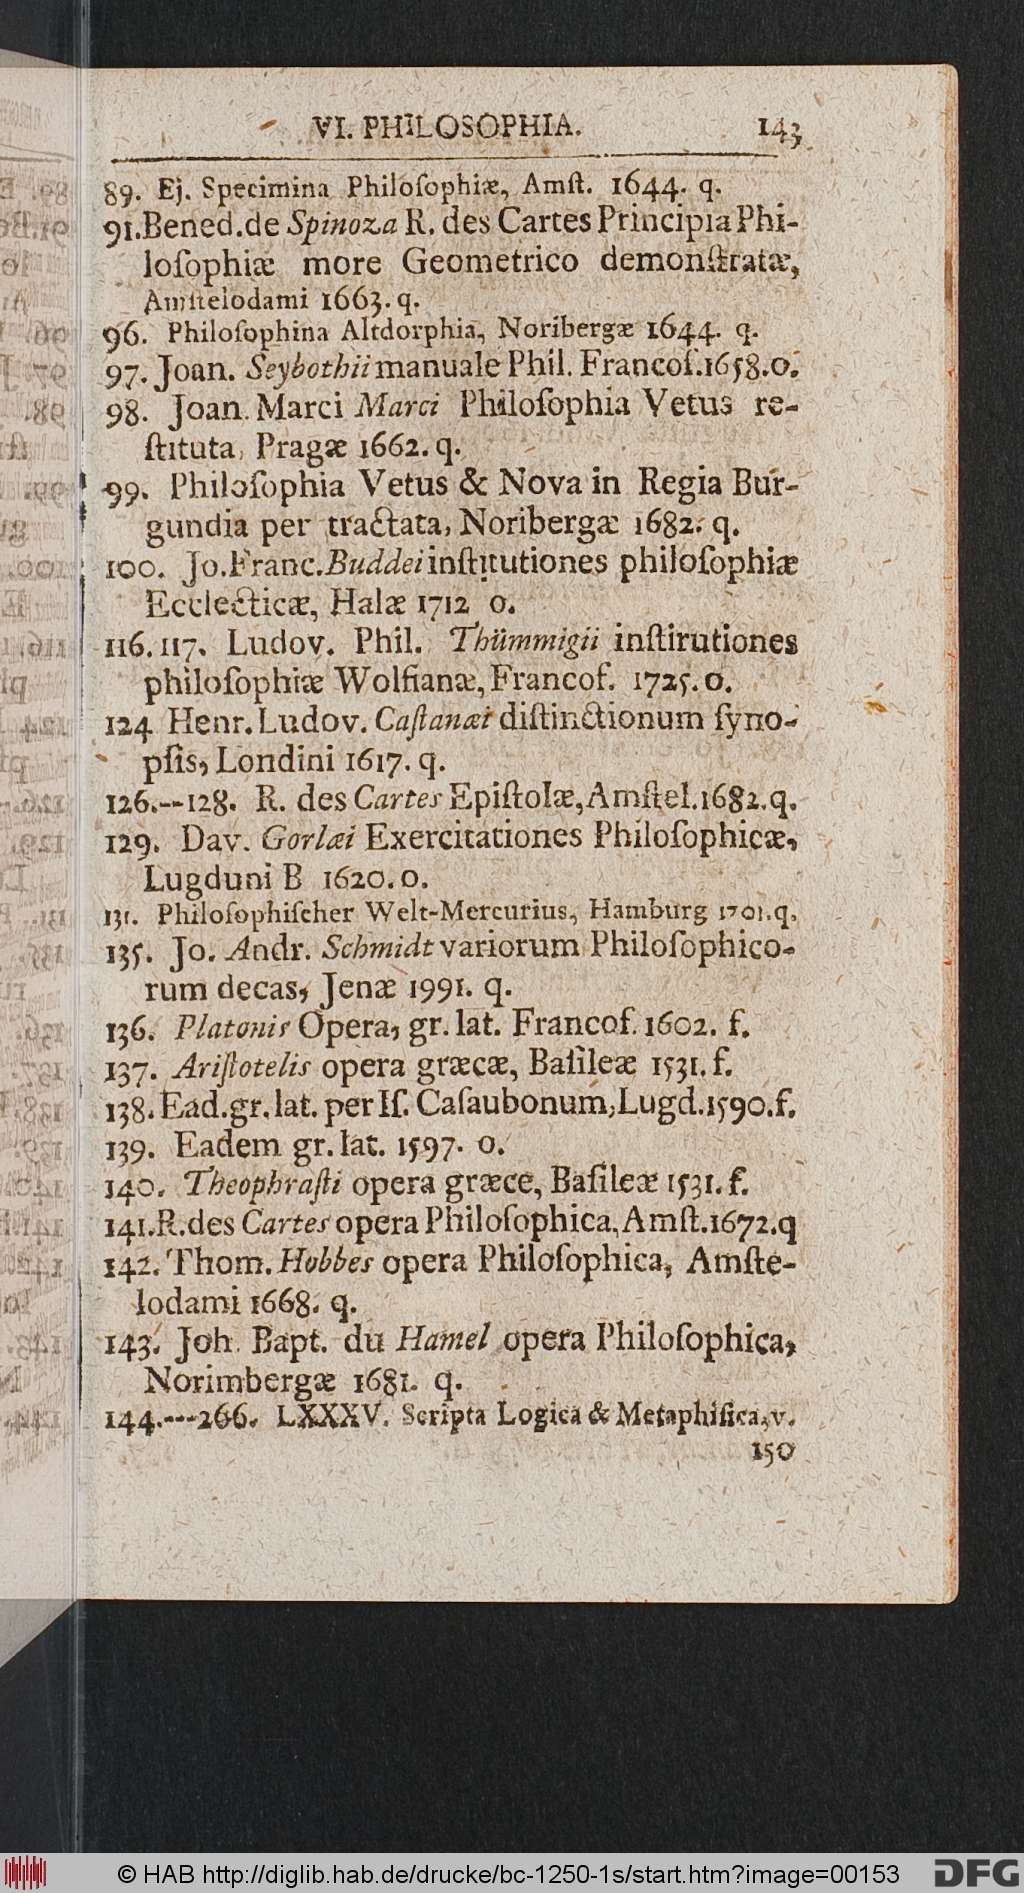 VI. PHILOSOPHIA. 143
89. Ej. Specimina Philoſophiæ, Amſt. 1644. q.
91. Bened. de Spinoza R. des Cartes Principia Phi-
loſophiæ more Geometrico demonſtratæ,
Amſtelodami 1663. q.
96. Philoſophina Altdorphia, Noribergæ 1644. q.
97. Joan. Seybothii manuale Phil. Francof. 1658. o.
98. Joan. Marci Marci Philoſophia Vetus re-
ſtituta, Pragæ 1662. q.
99. Philoſophia Vetus & Nova in Regia Bur-
gundia per tractata, Noribergæ 1682. q.
100. Jo. Franc. Buddei inſtitutiones philoſophiæ
Ecclecticæ, Halæ 1712 o.
116. 117. Ludov. Phil. Thümmigii inſtirutiones
philoſophiæ Wolfianæ, Francof. 1725. o.
124 Henr. Ludov. Caſtanæi diſtinctionum ſyno-
pſis, Londini 1617. q.
126.--128. R. des Cartes Epiſtolæ, Amſtel. 1682. q.
129. Dav. Gorlæi Exercitationes Philoſophicæ,
Lugduni B 1620. o.
131. Philoſophiſcher Welt-Mercurius, Hamburg 1701. q.
135. Jo. Andr. Schmidt variorum Philoſophico-
rum decas, Jenæ 1991. q.
136. Platonis Opera, gr. lat. Francof. 1602. f.
137. Ariſtotelis opera græcæ, Baſileæ 1531. f.
138. Ead. gr. lat. per Iſ. Caſaubonum, Lugd. 1590. f.
139. Eadem gr. lat. 1597. o.
140. Theophraſti opera græce, Baſileæ 1531. f.
141. R. des Cartes opera Philoſophica, Amſt. 1672. q
142. Thom. Hobbes opera Philoſophica, Amſte-
lodami 1668. q.
143. Joh. Bapt. du Hamel opera Philoſophica,
Norimbergæ 1681. q.
144.---266. LXXXV. Scripta Logica & Metaphiſica, v.
150
© HAB http://diglib.hab.de/drucke/bc-1250-1s/start.htm?image=00153 DFG